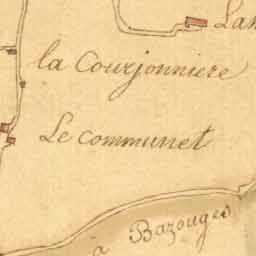 Lan
la Courjonniere
Le communet
à Bazouges